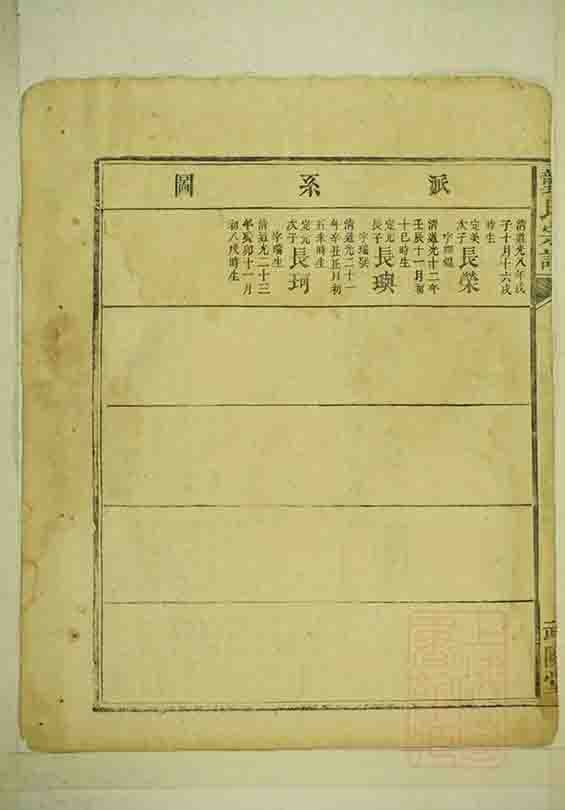 派系圖
清道光八年戊
子十月十六戌
時生
定美
次子
長榮
清道光十二年
壬辰十一月初
十巳時生
定元
長子
長璵
清道光二十一
年辛丑五月初
五未時生
定元
次子
長珂
字瑞生
清道光二十三
年癸卯十一月
初八戌時生
龔氏宗譜